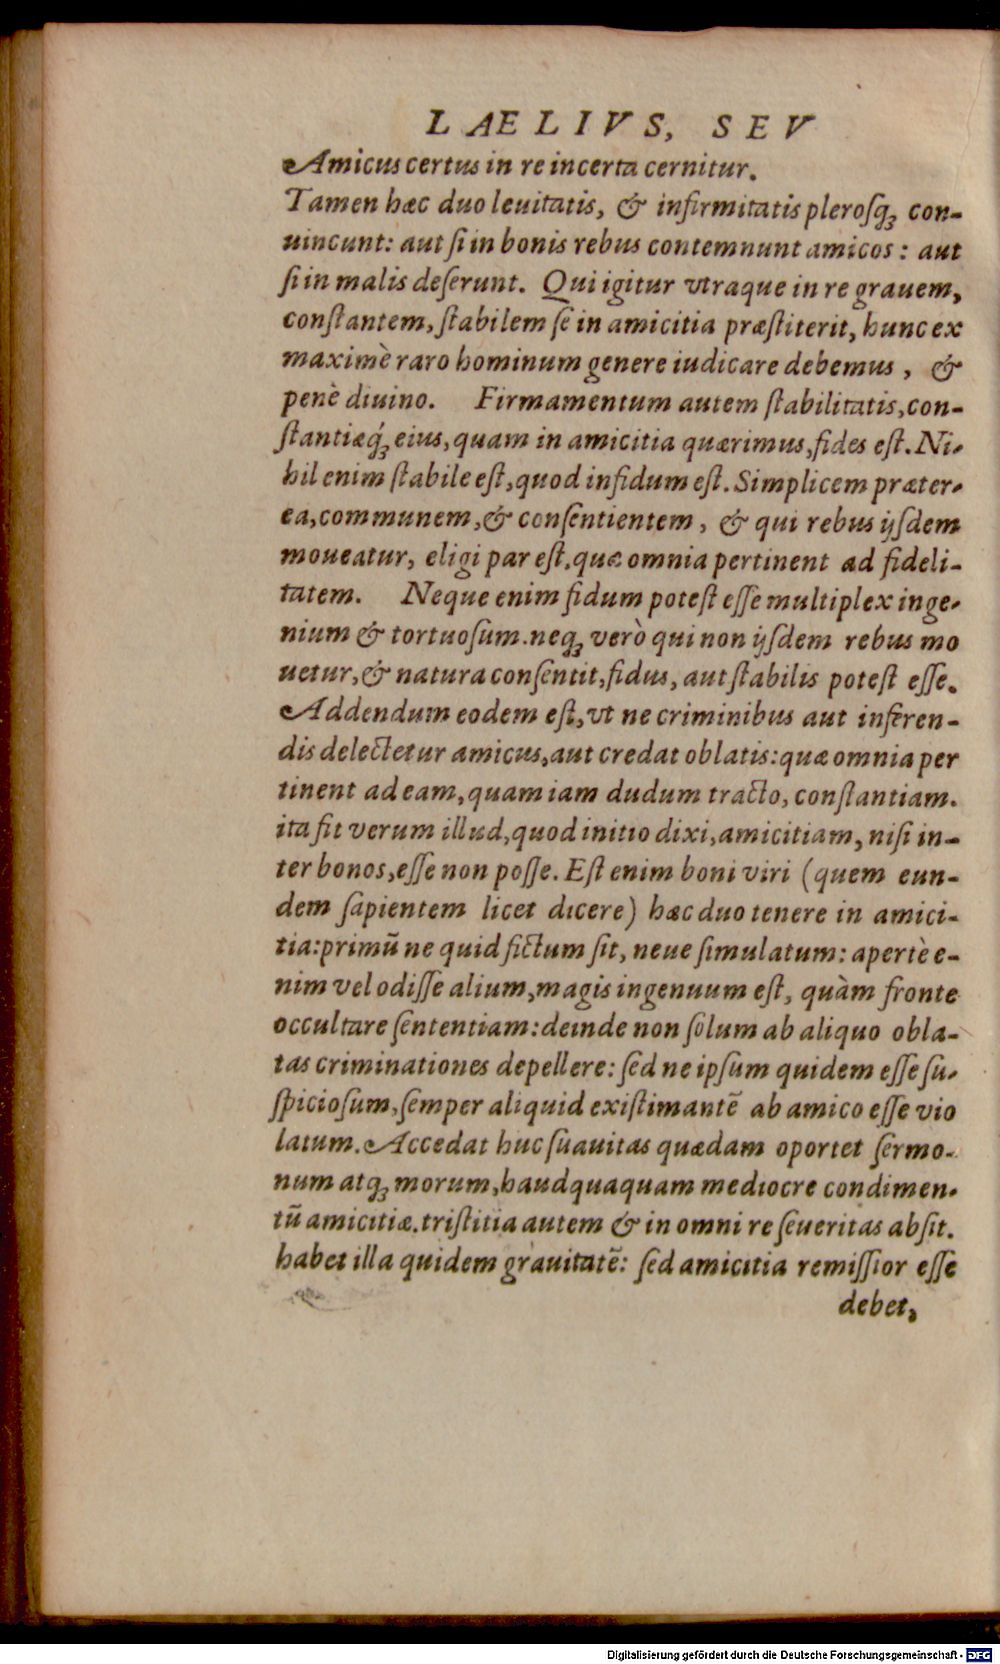 LAELIVS, SEV
Amicus certus in re incerta cernitur.
Tamen hæc duo leuitatis, & infirmitatis plerosq́ꝫ con-
uincunt: aut ſi in bonis rebus contemnunt amicos: aut
ſi in malis deſerunt. Qui igitur vtraque in re grauem,
conſtantem, ſtabilem ſe in amicitia præſtiterit, hunc ex
maximè raro hominum genere iudicare debemus, &
penè diuino. Firmamentum autem ſtabilitatis, con-
ſtantiæq́ꝫ eius, quam in amicitia quærimus, fides eſt. Ni-
hil enim ſtabile eſt, quod infidum eſt. Simplicem præter-
ea, communem, & conſentientem, & qui rebus ijſdem
moueatur, eligi par eſt. quæ omnia pertinent ad fideli-
tatem. Neque enim fidum poteſt eſſe multiplex inge-
nium & tortuoſum. neqꝫ verò qui non ijſdem rebus mo
uetur, & natura conſentit, fidus, aut ſtabilis poteſt eſſe.
Addendum eodem eſt, vt ne criminibus aut inferen-
dis delectetur amicus, aut credat oblatis: quæ omnia per
tinent ad eam, quam iam dudum tracto, conſtantiam.
ita fit verum illud, quod initio dixi, amicitiam, niſi in-
ter bonos, eſſe non poſſe. Eſt enim boni viri (quem eun-
dem ſapientem licet dicere) hæc duo tenere in amici-
tia: primū ne quid fictum ſit, neue ſimulatum: apertè e-
nim vel odiſſe alium, magis ingenuum eſt, quàm fronte
occultare ſententiam: deinde non ſolum ab aliquo obla-
tas criminationes depellere: ſed ne ipſum quidem eſſe ſu-
ſpicioſum, ſemper aliquid exiſtimantē ab amico eſſe vio
latum. Accedat huc ſuauitas quædam oportet ſermo-
num atqꝫ morum, haudquaquam mediocre condimen-
tū amicitiæ. triſtitia autem & in omni re ſeueritas abſit.
habet illa quidem grauitatē: ſed amicitia remiſſior eſſe
debet,
Digitalisierung gefördert durch die Deutsche Forschungsgemeinschaft - DFG